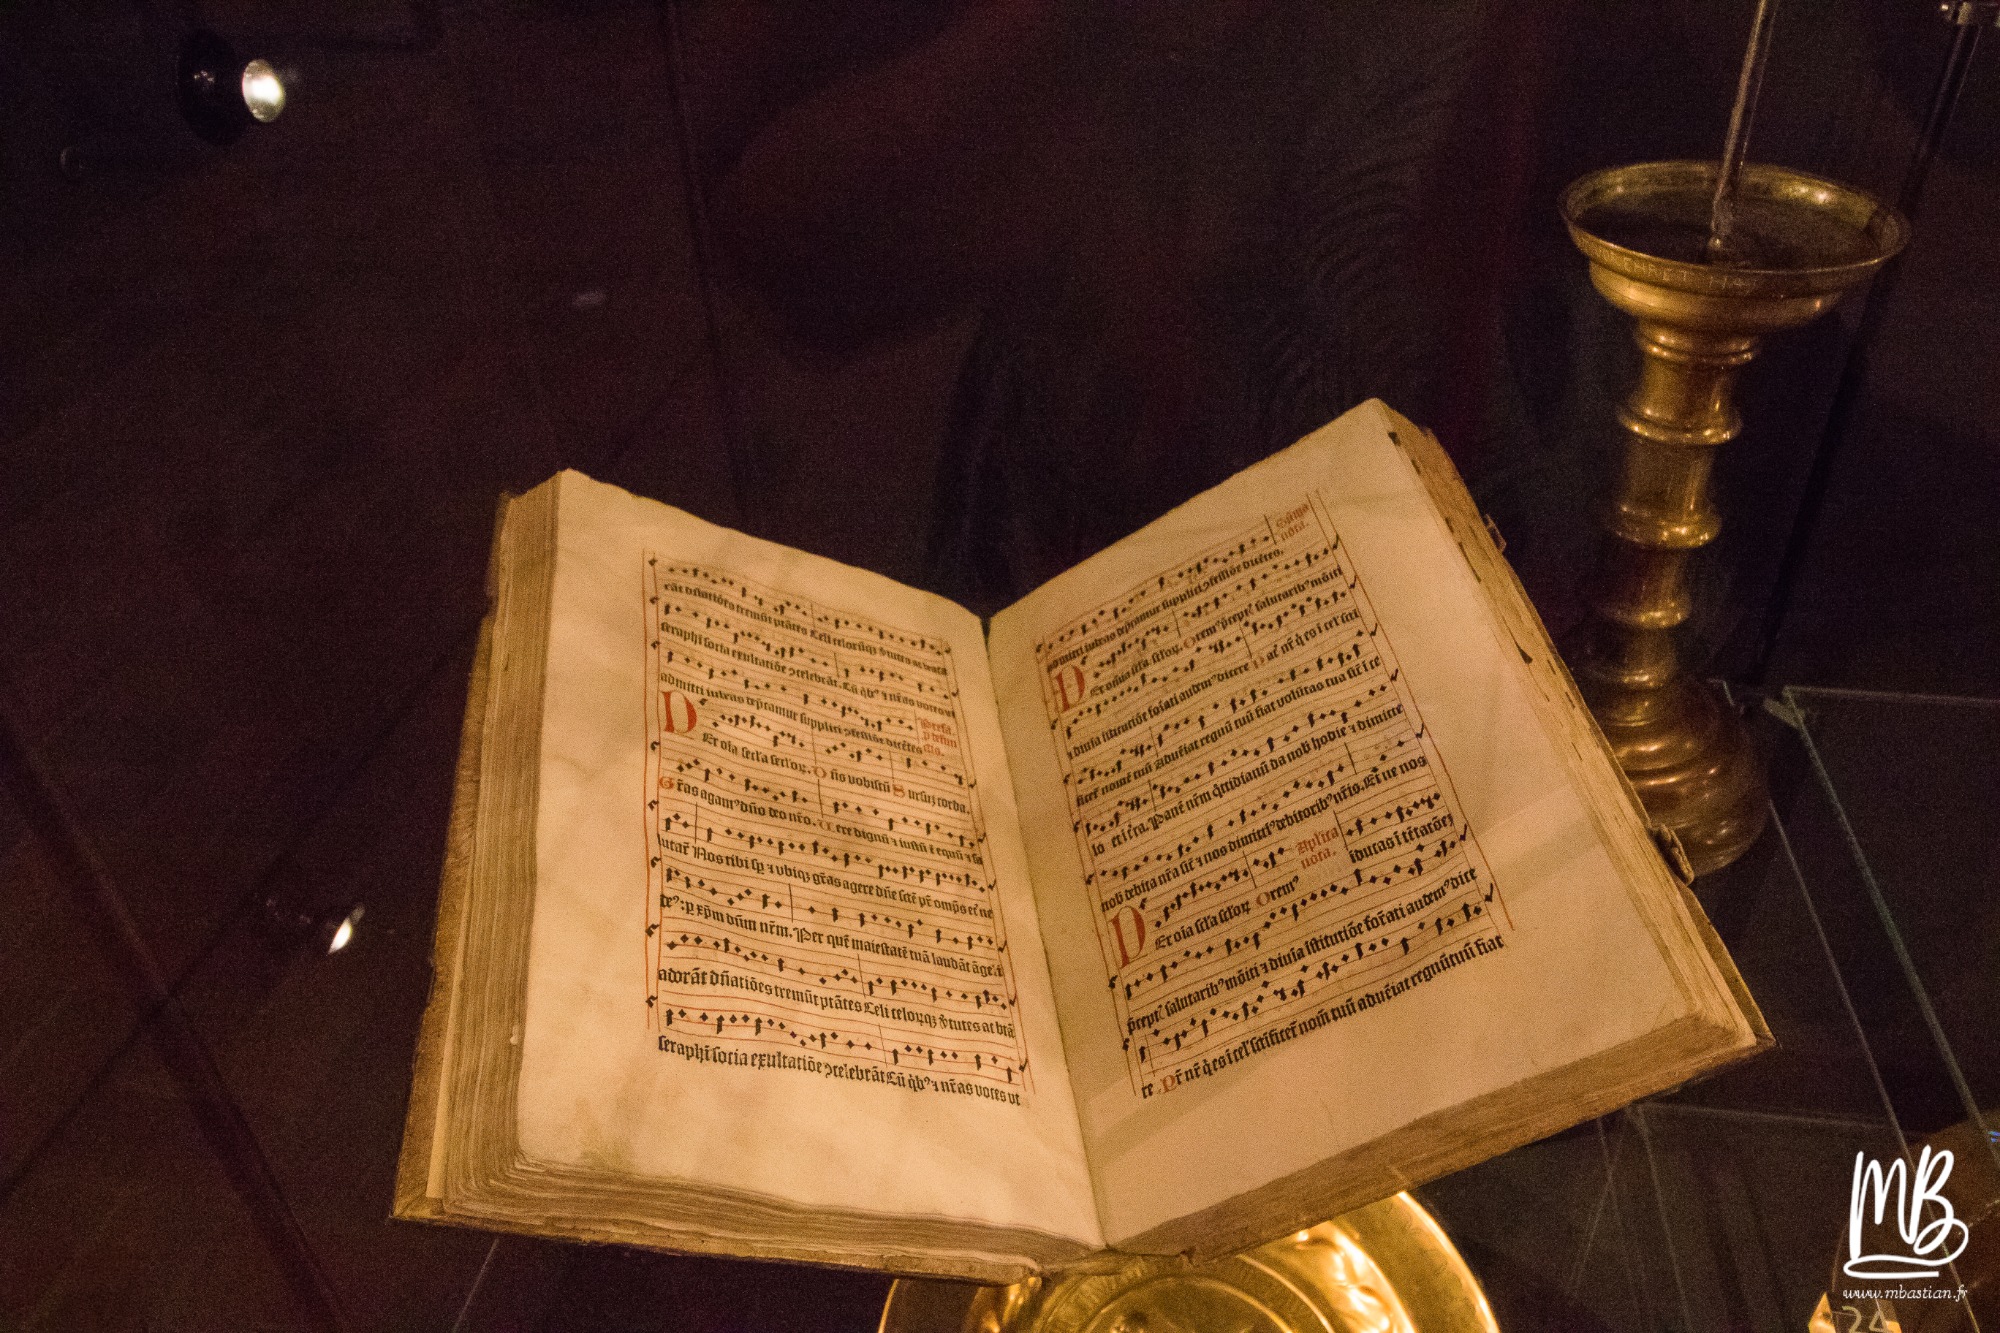 rāt dñatiões tremūt ptātes Celi celorūqz ac
seraphī socia exultatiōe ɔcelebrāt. Cū q̄bꝰ ⁊ nr̄as voces ut
admitti iubeas dep̄camur supplici ɔfessiōe dicētes
Prefa. p defun ctis.
D Er oīa secl'a secl'oꝝ. D ñs vobiscū S ursuz corda.
Gr̄as agamꝰ dño deo nr̄o. Uere dignū ⁊ iustū ē equū ⁊ sa
lutar̄ Nos tibi sp̄ ⁊ ubiqz gr̄as agere dñe sctē pr̄ omps et'ne
deꝰ: p xp̄m dñm nr̄m. Per quē maiestatē tuā laudāt āge'i
adorāt dñatiões tremūt ptātes Celi celoꝝqz v̄tutes ac btā
seraphī socia exultatiōe ɔcelebrāt Cū q̄bꝰ ⁊ nr̄as voces ut
admitti iubeas dep̄camur supplici ɔfessiōe dicētes.
nota.
D Er oīa scl'a scl'oꝝ. Oremꝰ p̄ceptꝭ salutaribꝰ mōiti
⁊ diuīa īstitutiōe for̄ati audemꝰ dicere Pat̄ nr̄ q̄ es ī cel' scti
ficet̄ nomē tuū Adueīat regnū tuū fiat volūtas tua sic̄ ī ce
lo et ī t̄ra. Panē nr̄m q̄tidianū da nob hodie ⁊ dimitte
nob debita nr̄a sic̄ ⁊ nos dimittīꝰ debitoribꝰ nr̄is. Et ne nos
īducas ī tētatōez
nota.
D Er oīa scl'a scl'oꝝ Oremꝰ
p̄ceptꝭ salutaribꝰ mōiti ⁊ diuīa īstitutiōe for̄ati audemꝰ dice
re Pr̄ nr̄ q̄ es ī cel' sctificet̄ nom̄ tuū adueīat regnū tuū fiat
MB
www.mbastian.fr